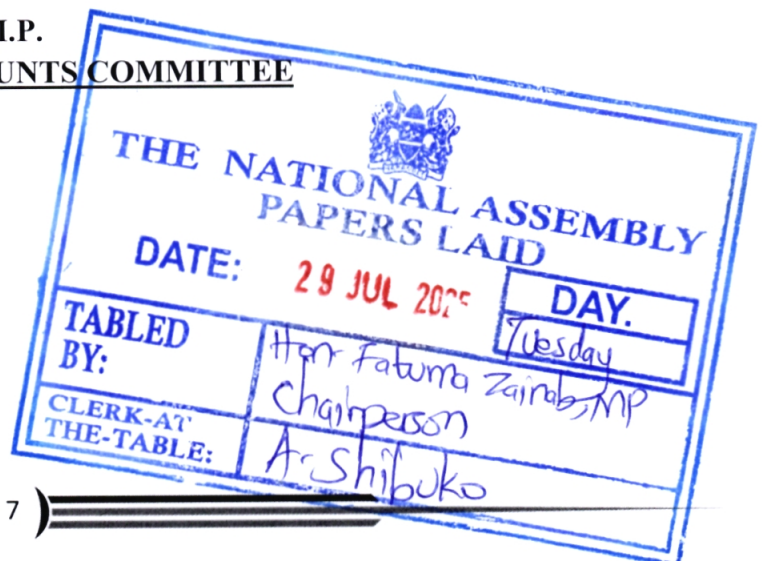 I.P.
UNTS COMMITTEE
THE NATIONAL ASSEMBLY
PAPERS LAID
DATE: 29 JUL 2025
DAY.
Tuesday
TABLED BY:
Hon Fatuma Zainab, MP
Chairperson
CLERK-AT THE-TABLE:
A. Shibuko
7